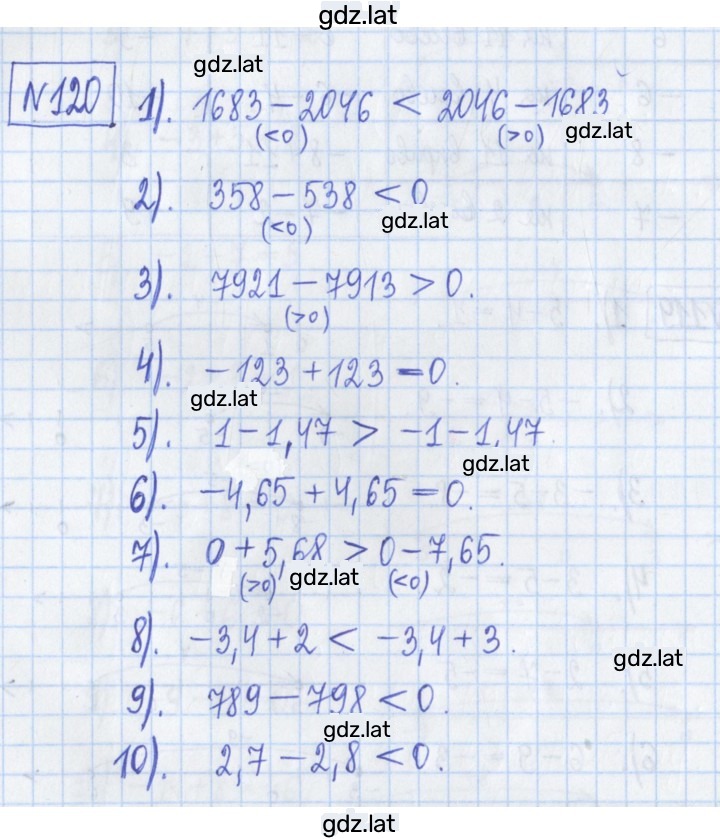 gdz.lat
gdz.lat
№120 1). 1683 - 2046 < 2046 - 1683
(<0) (>0) gdz.lat
2). 358 - 538 < 0
(<0) gdz.lat
3). 7921 - 7913 > 0.
(>0)
4). -123 + 123 = 0.
gdz.lat
5). 1 - 1,47 > -1 - 1,47
gdz.lat
6). -4,65 + 4,65 = 0.
7). 0 + 5,68 > 0 - 7,65.
(>0) gdz.lat (<0)
8). -3,4 + 2 < -3,4 + 3.
gdz.lat
9). 789 - 798 < 0.
gdz.lat
10). 2,7 - 2,8 < 0.
gdz.lat